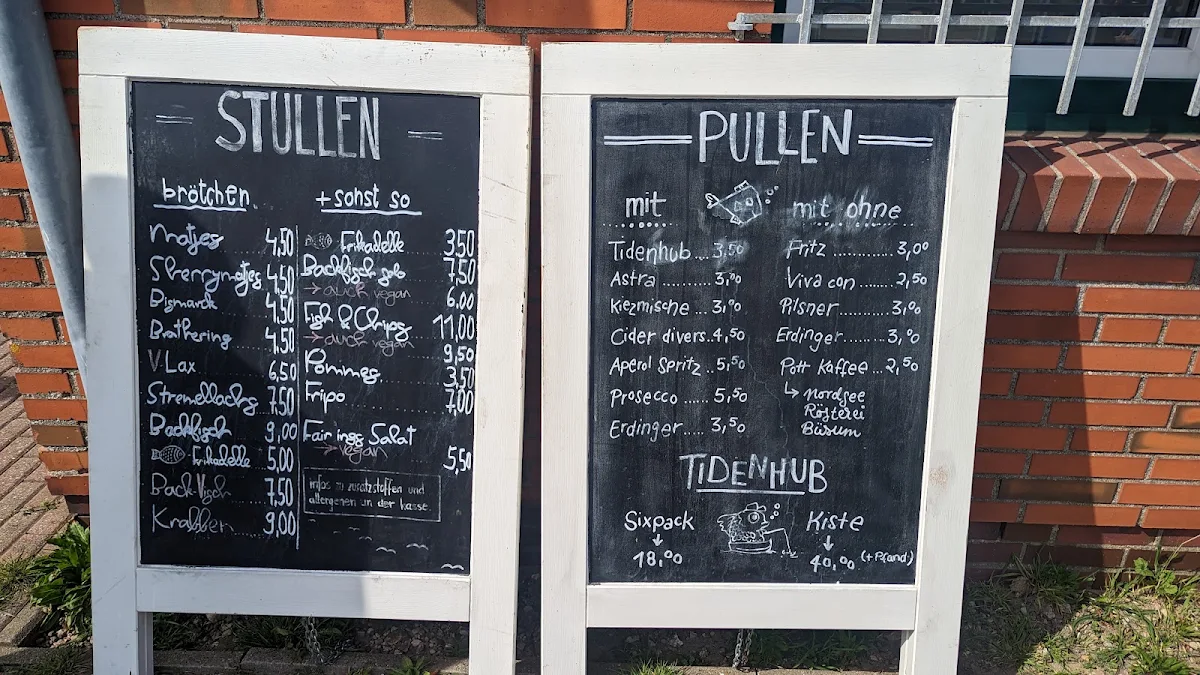 STULLEN
brötchen
Matjes 4,50
Sherrymatjes 4,50
Bismarck 4,50
Brathering 4,50
V-Lax 6,50
Stremellachs 7,50
Backfisch 9,00
Frikadelle 5,00
Back-Visch 7,50
Krabben 9,00
+ sonst so
Frikadelle 3,50
Backfisch solo 7,50
→ auch vegan 6,00
Fish & Chips 11,00
→ auch vegan 9,50
Pommes 3,50
Fripo 7,00
Fair ings Salat
→ vegan 5,50
infos zu zusatzstoffen und
allergenen an der kasse
PULLEN
mit
Tidenhub ... 3,50
Astra ........ 3,00
Kiezmische ... 3,00
Cider divers.. 4,50
Aperol Spritz .. 5,50
Prosecco ..... 5,50
Erdinger ..... 3,50
mit ohne
Fritz ........... 3,00
Viva con ....... 2,50
Pilsner ........ 3,00
Erdinger ....... 3,00
Pott Kaffee ... 2,50
↳ nordsee
Rösterei
Büsum
TIDENHUB
Sixpack
↓
18,00
Kiste
↓
40,00 (+Pfand)